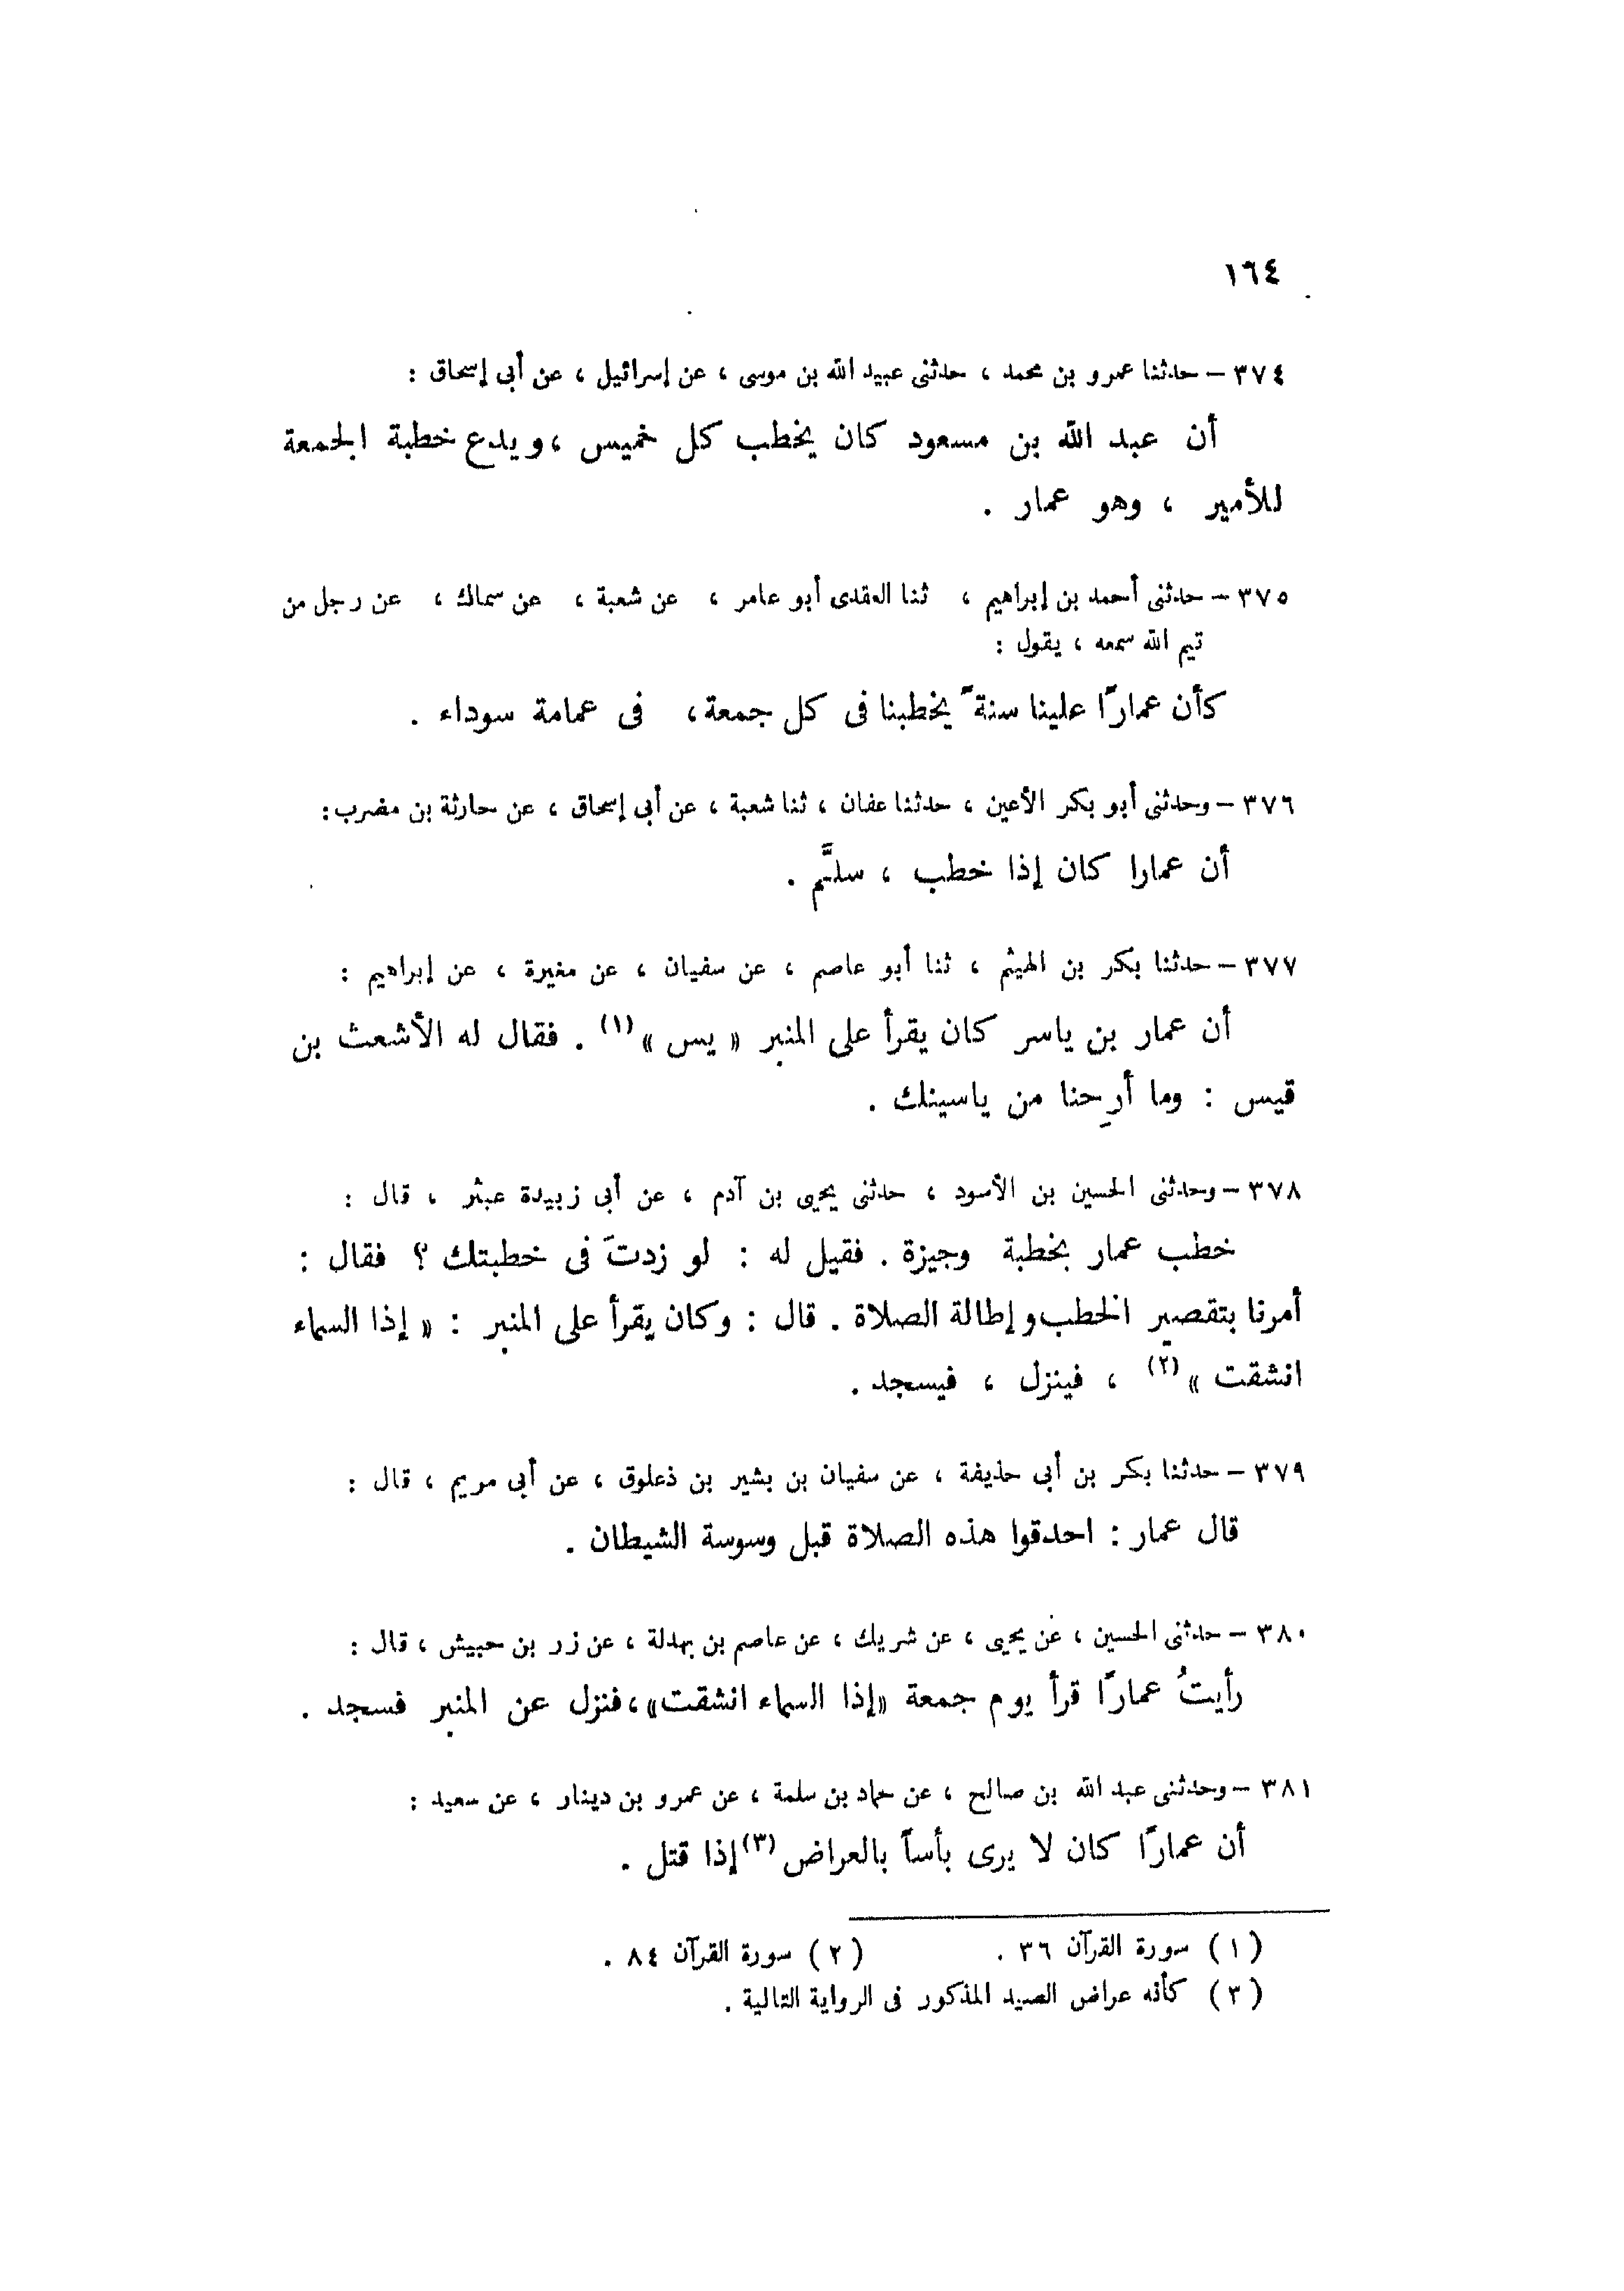 ١٦٤
٣٧٤ – حدثنا عمرو بن محمد ، حدثنى عبيد الله بن موسى ، عن إسرائيل ، عن أبى إسحاق :
أن عبد الله بن مسعود كان يخطب كل خميس ، ويدع خطبة الجمعة
للأمير ، وهو عمار .
٣٧٥ – حدثنى أحمد بن إبراهيم ، ثنا العقدى أبو عامر ، عن شعبة ، عن سماك ، عن رجل من
تيم الله سمعه ، يقول :
كأن عمارًا علينا سنةً يخطبنا فى كل جمعة ، فى عمامة سوداء .
٣٧٦ – وحدثنى أبو بكر الأعين ، حدثنا عفان ، ثنا شعبة ، عن أبى إسحاق ، عن حارثة بن مضرب :
أن عمارا كان إذا خطب ، سلَّم .
٣٧٧ – حدثنا بكر بن الهيثم ، ثنا أبو عاصم ، عن سفيان ، عن مغيرة ، عن إبراهيم :
أن عمار بن ياسر كان يقرأ على المنبر « يس » (١) . فقال له الأشعث بن
قيس : وما أرِحنا من ياسينك .
٣٧٨ – وحدثنى الحسين بن الأسود ، حدثنى يحيى بن آدم ، عن أبى زبيدة عبثر ، قال :
خطب عمار بخطبة وجيزة . فقيل له : لو زدتَ فى خطبتك ؟ فقال :
أمرنا بتقصير الخطب وإطالة الصلاة . قال : وكان يقرأ على المنبر : « إذا السماء
انشقت » (٢) ، فينزل ، فيسجد .
٣٧٩ – حدثنا بكر بن أبى حذيفة ، عن سفيان بن بشير بن ذعلوق ، عن أبى مريم ، قال :
قال عمار : احدقوا هذه الصلاة قبل وسوسة الشيطان .
٣٨٠ – حدثنى الحسين ، عن يحيى ، عن شريك ، عن عاصم بن بهدلة ، عن زر بن حبيش ، قال :
رأيتُ عمارًا قرأ يوم جمعة «إذا السماء انشقت» ، فنزل عن المنبر فسجد .
٣٨١ – وحدثنى عبد الله بن صالح ، عن حماد بن سلمة ، عن عمرو بن دينار ، عن سعيد :
أن عمارًا كان لا يرى بأساً بالعراض (٣) إذا قتل .
(١) سورة القرآن ٣٦ . (٢) سورة القرآن ٨٤ .
(٣) كأنه عراض الصيد المذكور فى الرواية التالية .